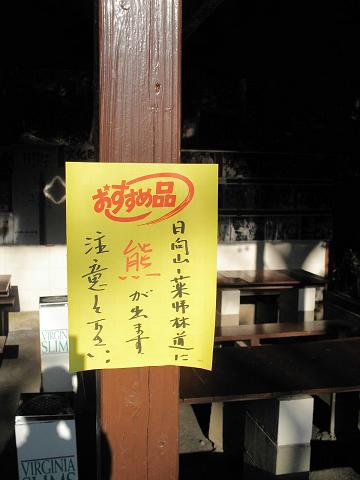 おすすめ品
日向山・薬師林道に
熊が出ます
注意して下さい!
VIRGINIA
SLIMS
VIRGINIA
SLIMS